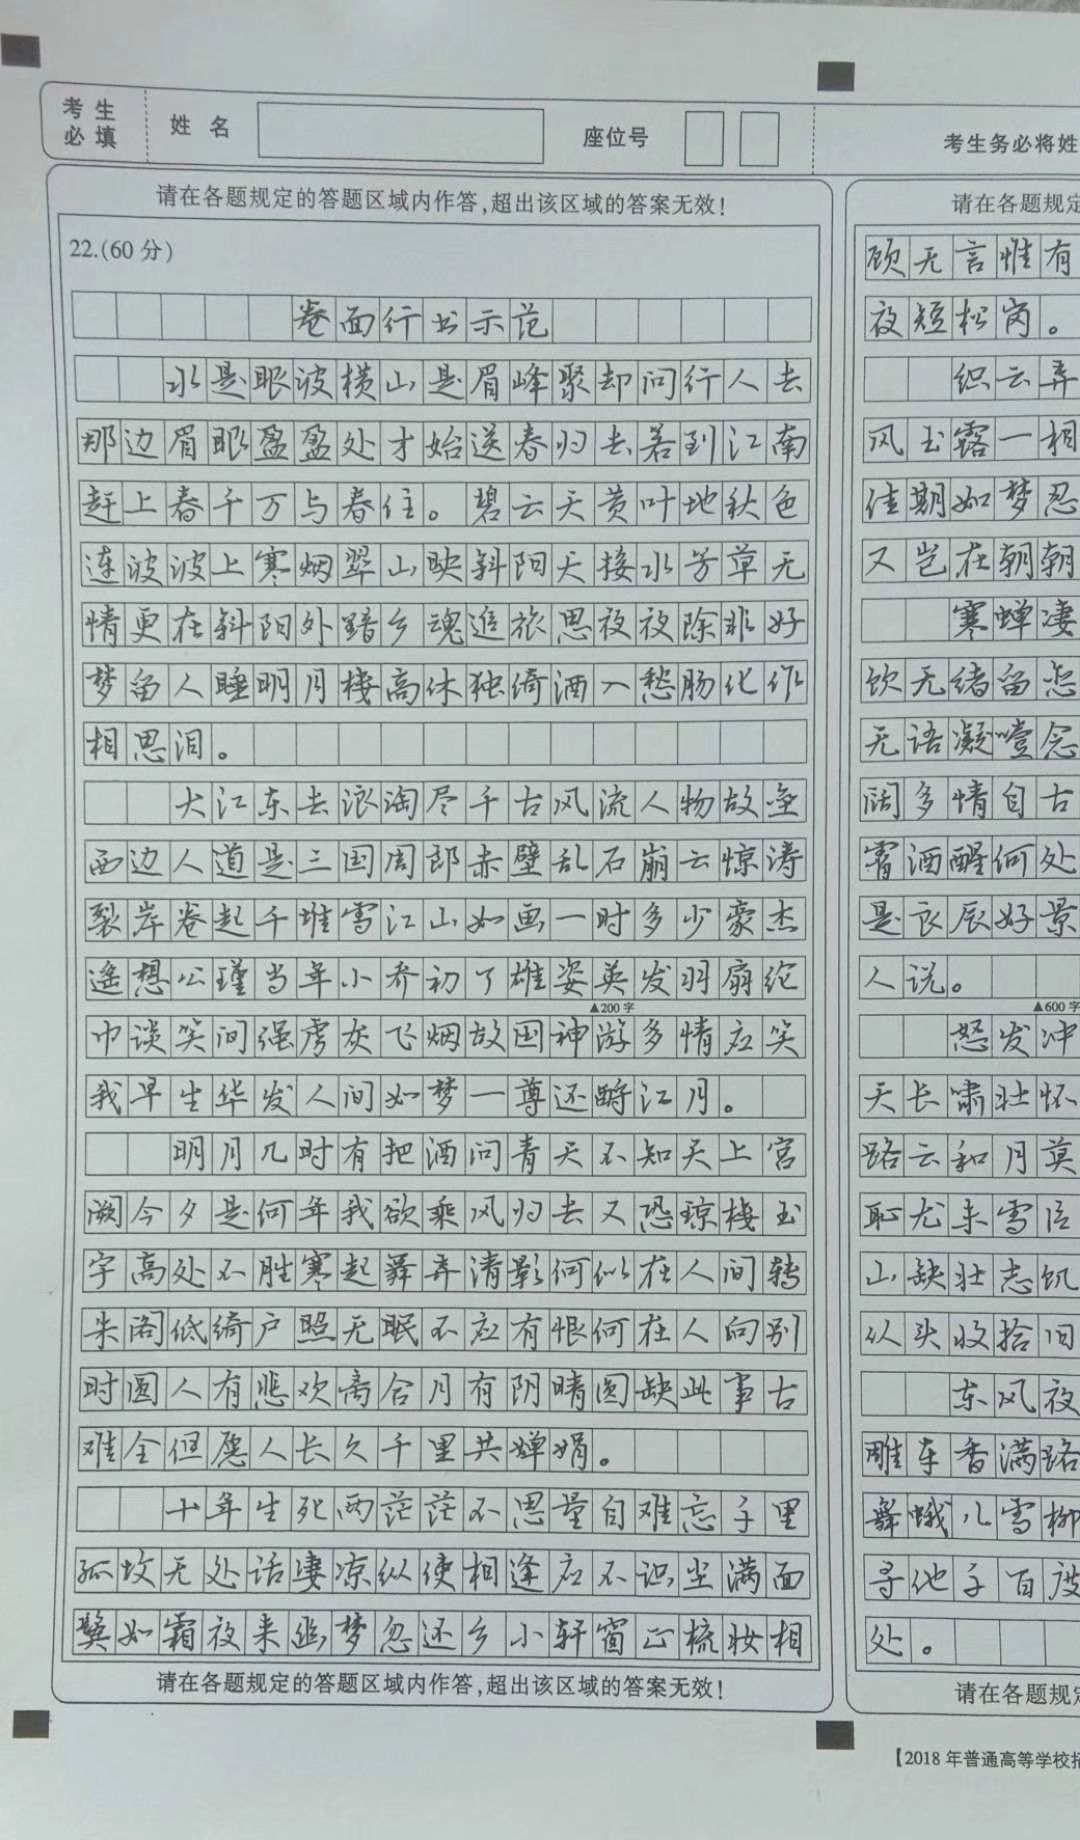 考生必填
姓 名
座位号
考生务必将姓
请在各题规定的答题区域内作答,超出该区域的答案无效!
22.(60分)
卷面行书示范
水是眼波横山是眉峰聚却问行人去
那边眉眼盈盈处才始送春归去若到江南
赶上春千万与春住。碧云天黄叶地秋色
连波波上寒烟翠山映斜阳天接水芳草无
情更在斜阳外黯乡魂追旅思夜夜除非好
梦留人睡明月楼高休独倚酒入愁肠化作
相思泪。
大江东去浪淘尽千古风流人物故垒
西边人道是三国周郎赤壁乱石崩云惊涛
裂岸卷起千堆雪江山如画一时多少豪杰
遥想公瑾当年小乔初了雄姿英发羽扇纶
▲200字
巾谈笑间强虏灰飞烟故国神游多情应笑
我早生华发人间如梦一尊还酹江月。
明月几时有把酒问青天不知天上宫
阙今夕是何年我欲乘风归去又恐琼楼玉
宇高处不胜寒起舞弄清影何似在人间转
朱阁低绮户照无眠不应有恨何在人向别
时圆人有悲欢离合月有阴晴圆缺此事古
难全但愿人长久千里共婵娟。
十年生死两茫茫不思量自难忘千里
孤坟无处话凄凉纵使相逢应不识尘满面
鬓如霜夜来幽梦忽还乡小轩窗正梳妆相
请在各题规定的答题区域内作答,超出该区域的答案无效!
请在各题规定
顾无言惟有
夜短松岗。
织云弄
风玉露一相
佳期如梦忍
又岂在朝朝
寒蝉凄
饮无绪留恋
无语凝噎念
阔多情自古
宵酒醒何处
是良辰好景
人说。
▲600字
怒发冲
天长啸壮怀
路云和月莫
耻尤未雪臣
山缺壮志饥
从头收拾旧
东风夜
雕车香满路
舞蛾儿雪柳
寻他千百度
处。
请在各题规定
【2018年普通高等学校招